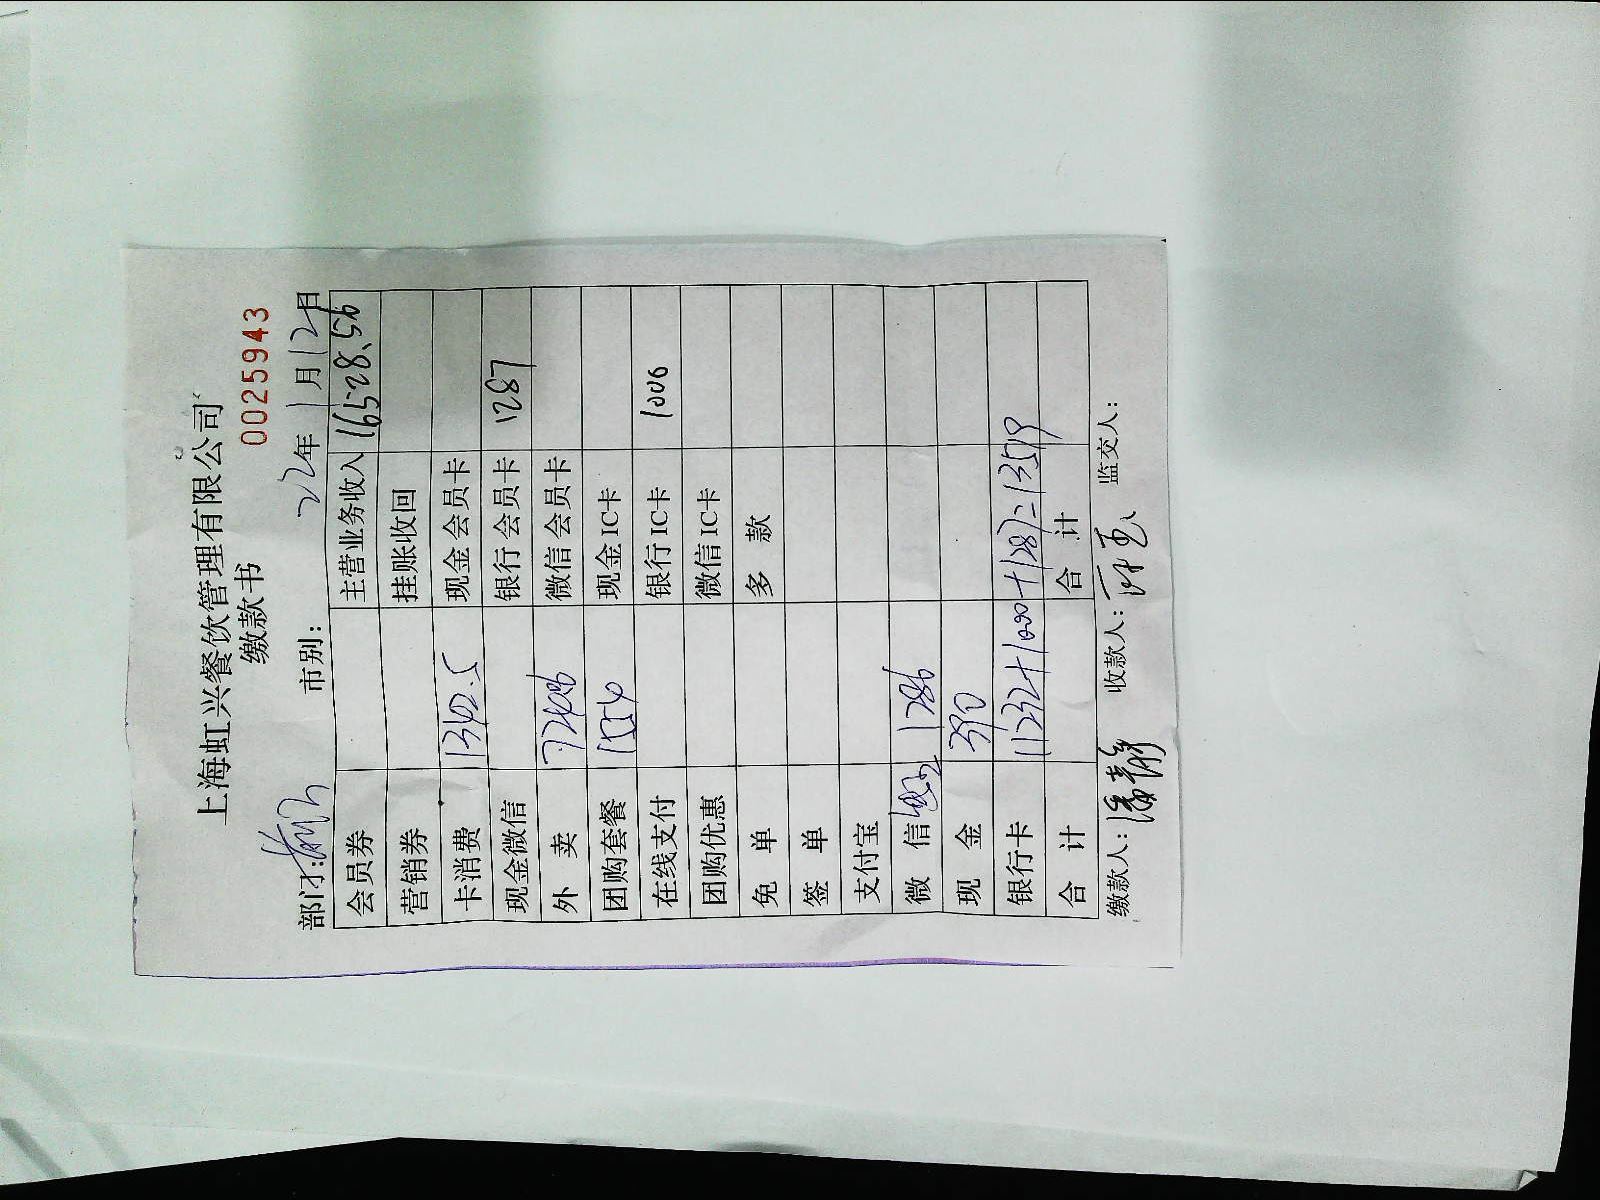 上海虹兴餐饮管理有限公司
缴款书 0025943
部门: 市别: 22年1月12日
会员券 主营业务收入 16528.56
营销券 挂账收回
卡消费 1342.5 现金会员卡
现金微信 银行会员卡 1287
外卖 724.06 微信会员卡
团购套餐 1554 现金IC卡
在线支付 银行IC卡 1000
团购优惠 微信IC卡
免单 多款
签单
支付宝
微信 1286
现金 390
银行卡 11232+1000+1287=13519
合计 合计
缴款人:潘静 收款人: 监交人: